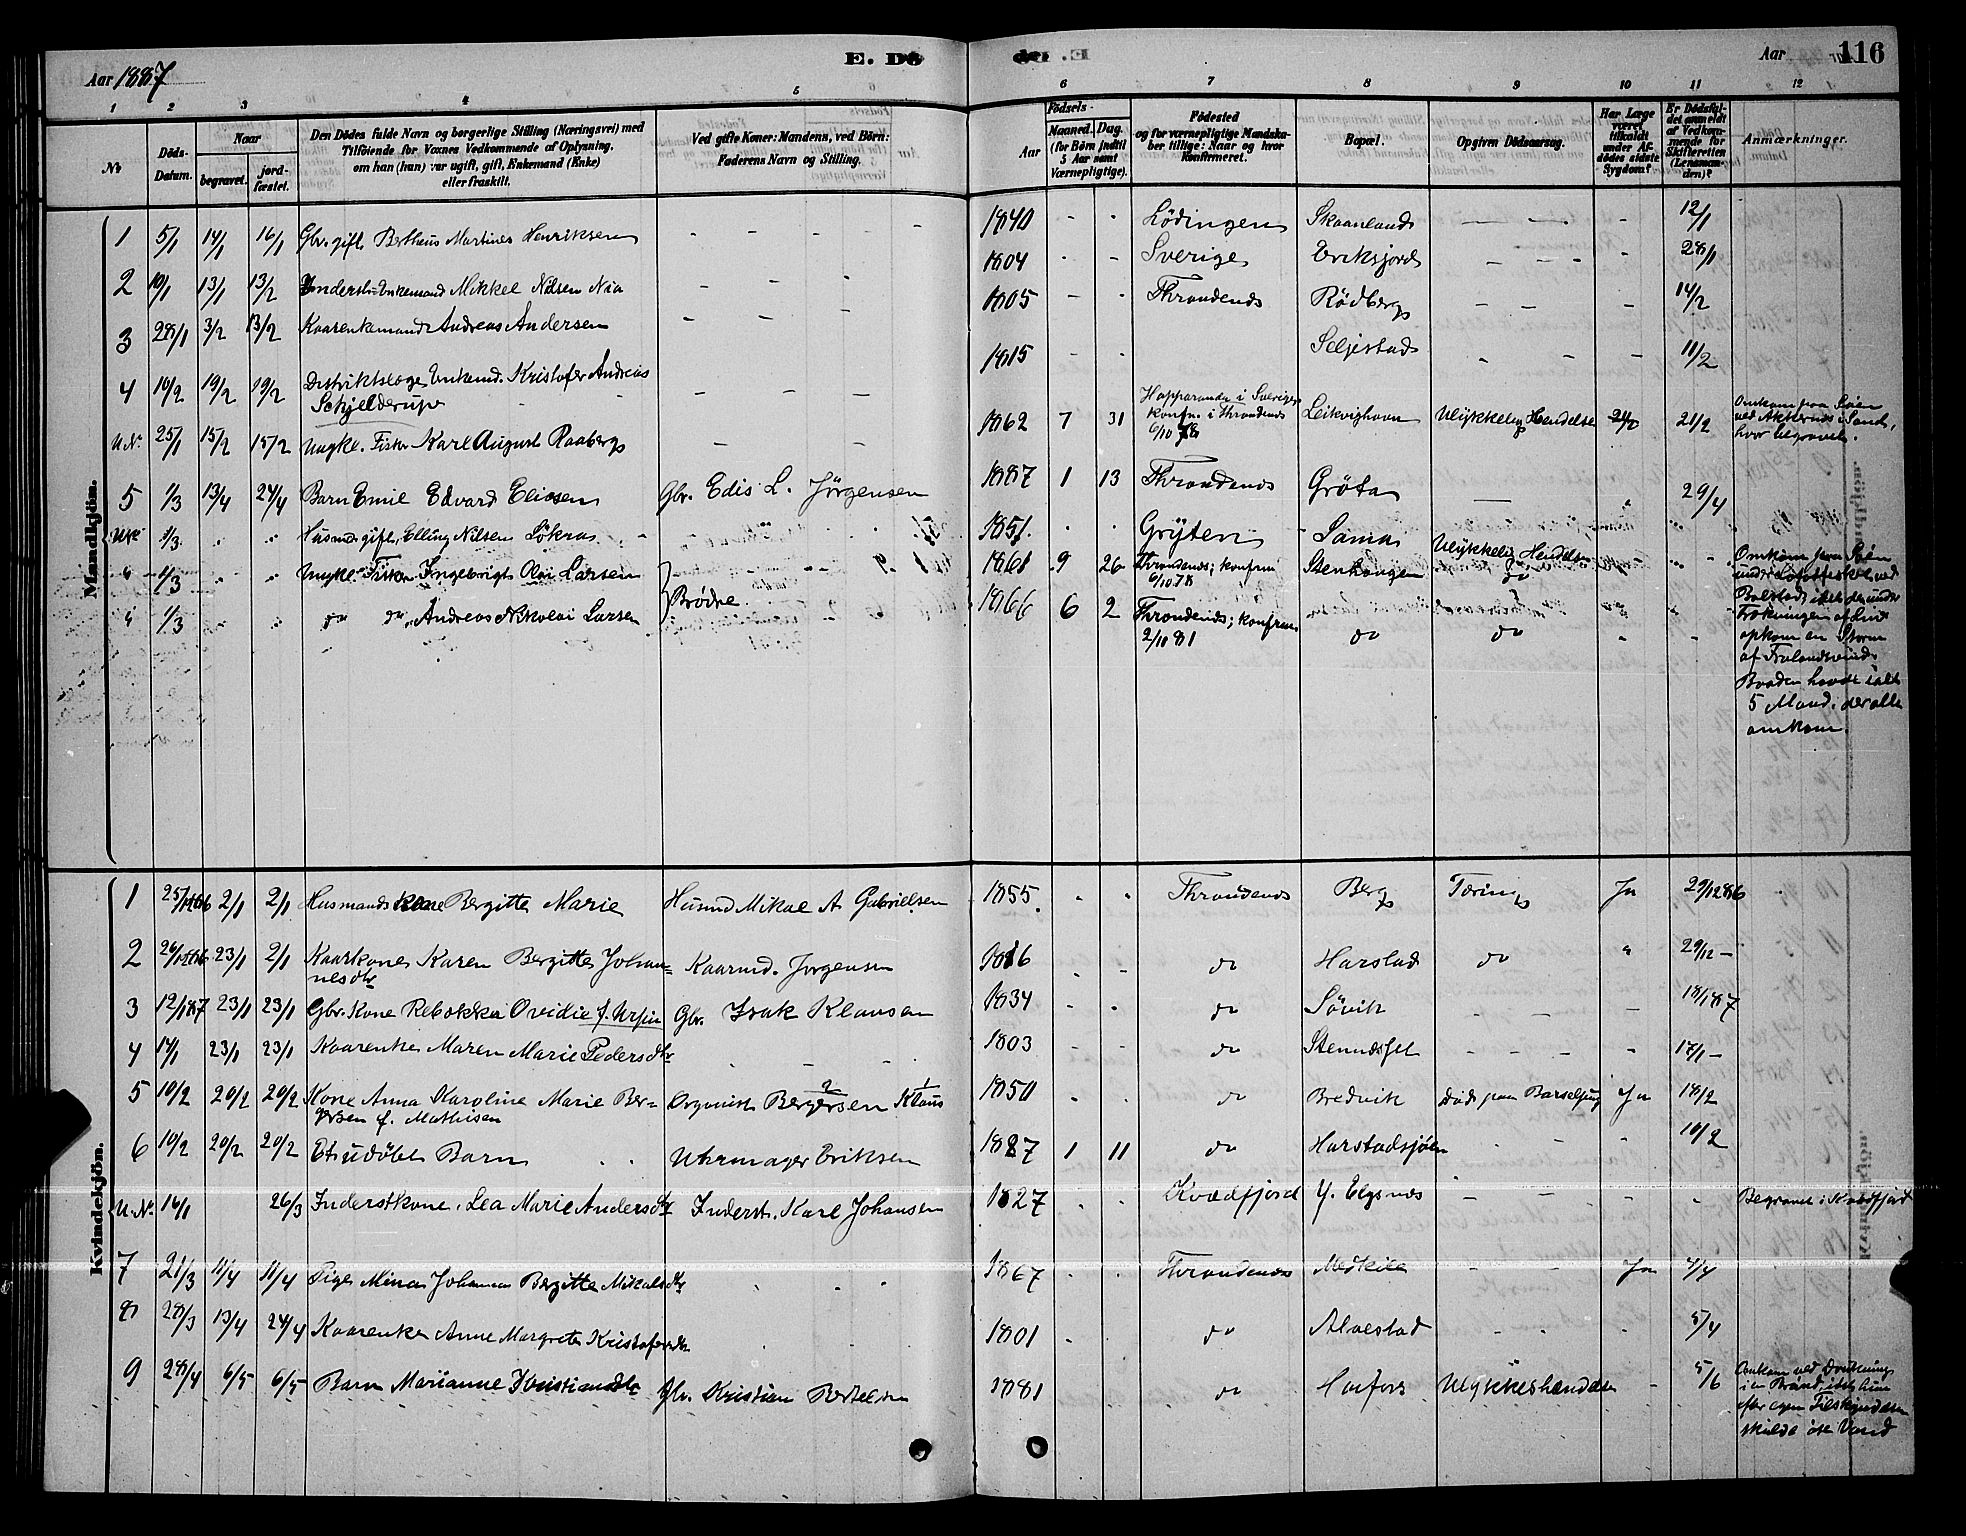 Aar 1887
E. Dö
Aar
116
1 2 3 4 5 6 7 8 9 10 11 12
No
Döds-Datum.
Naar
begravet.
jord-fæstet.
Den Dödes fulde Navn og borgerlige Stilling (Næringsvei) med
Tilföiende for Voxnes Vedkommende af Oplysning,
om han (hun) var ugift, gift, Enkemand (Enke)
eller fraskilt.
Ved gifte Koner: Mandens, ved Börn:
Faderens Navn og Stilling.
Födsels-
Aar
Maaned. Dag.
(for Börn indtil
5 Aar samt
Værnepligtige).
Födested
og for værnepligtige Mandska-
ber tillige: Naar og hvor
konfirmeret.
Bopæl.
Opgiven Dödsaarsag.
Har Læge
været
tilkaldt
under Af-
dödes sidste
Sygdom?
Er Dödsfal-
det anmeldt
af Vedkom-
mende for
Skifteretten
(Lensman-
den)?
Anmærkninger.
Mandkjön.
1 5/1 14/1 16/1 Gbr. gift Martines Henriksen 1840 Lödingen Skaanland 12/1
2 10/1 13/1 13/2 Inderst-Enkemand Mikkel Nilsen Nia 1804 Sverige Eriksjord 28/1
3 28/1 3/2 13/2 Kaarenkemand Andreas Andersen 1805 Throndenes Rödberg 14/2
4 10/2 19/2 19/2 Distriktslæge Enkemd. Kristofer Andreas
Schjelderup 1815 Seljestad 11/2
U.No 25/1 15/2 15/2 Ungkl. Fisker Karl August Raaberg 1862 7 31 Happaranda i Sverige
konfr. i Throndenes
6/10 78 Leikvighavn Ulykkelig Hendelse 21/2 21/2 Omkom paa Söen
ved i Sand,
hvor begravet.
5 1/3 13/4 24/4 Barn Emil Edvard Eliesen Gbr. Edis L. Jörgensen 1887 1 13 Throndenes Gröta 29/4
1/3 Husmd gift, Elling Nilsen Sökra 1851 Gryten Sama Ulykkelig Hendelse
1/3 Ungkl. Fisker Ingebrigt Olai Larsen 1861 9 26 Throndenes; konfrm
6/10.78 Stenhaugen do Omkom paa Söen
1/3 do do Andreas Nikolai Larsen Brödre 1866 6 2 Throndenes; konfrm
2/10 81 do do
under Lofotfisket ved
Bolstad, idet der under
Trækningen af
opkom en Storm
af Fralandsvind.
Baaden havde ialt
5 Mand, der alle
omkom.
Kvindekjön.
1 25/12 86 2/1 2/1 Husmandskone Bergitte Marie Husmd Mikal A Gabrielsen 1855 Throndenes Berg Tæring Ja 29/12 86
2 26/12 86 23/1 2/1 Kaarkone Karen Bergitte Johan-
nesdtr Kaarmd. Jørgensen 1816 do Harstad do " 29/12 –
3 12/1 87 23/1 23/1 Gbr. Kone Rebekka Ovidie f. Gbr. Isak Klausen 1834 do Sövik 18/1 87
4 14/1 23/1 23/1 Kaarenke Maren Marie Pedersdtr 1803 do Stenudset 17/1 –
5 10/2 20/2 20/2 Kone Anna Karoline Marie Ber-
gersen f. Mathisen Organist Bergersen Klaus 1850 do Bredvik Död paa Barselseng Ja 18/2
6 10/2 20/2 20/2 Et udöbt Barn Uhrmager Eriksen 1887 1 11 do Harstadsjöen 10/2
U.No 14/1 26/3 Inderstkone Lea Marie Andersdtr Inderst. Karl Johansen 1827 Kvædfjord Y. Elgsnes Begravet i Kvædfjord
7 21/3 11/4 11/4 Pige Mina Johanna Bergitte Mikalsdtr 1867 Throndenes Medkila Ja 4/4
8 28/3 13/4 24/4 Kaarenke Anne Margrete Kristofersdtr 1801 do Alvestad 5/4
9 28/4 6/5 6/5 Barn Marianne Kristiansdtr Gbr. Kristian Bertelsen 1881 do Ulykkeshændelse 5/6 Omkom ved Drukning
i en Brönd, idet hun
efter egen Tilskyndelse
skulde öse Vand